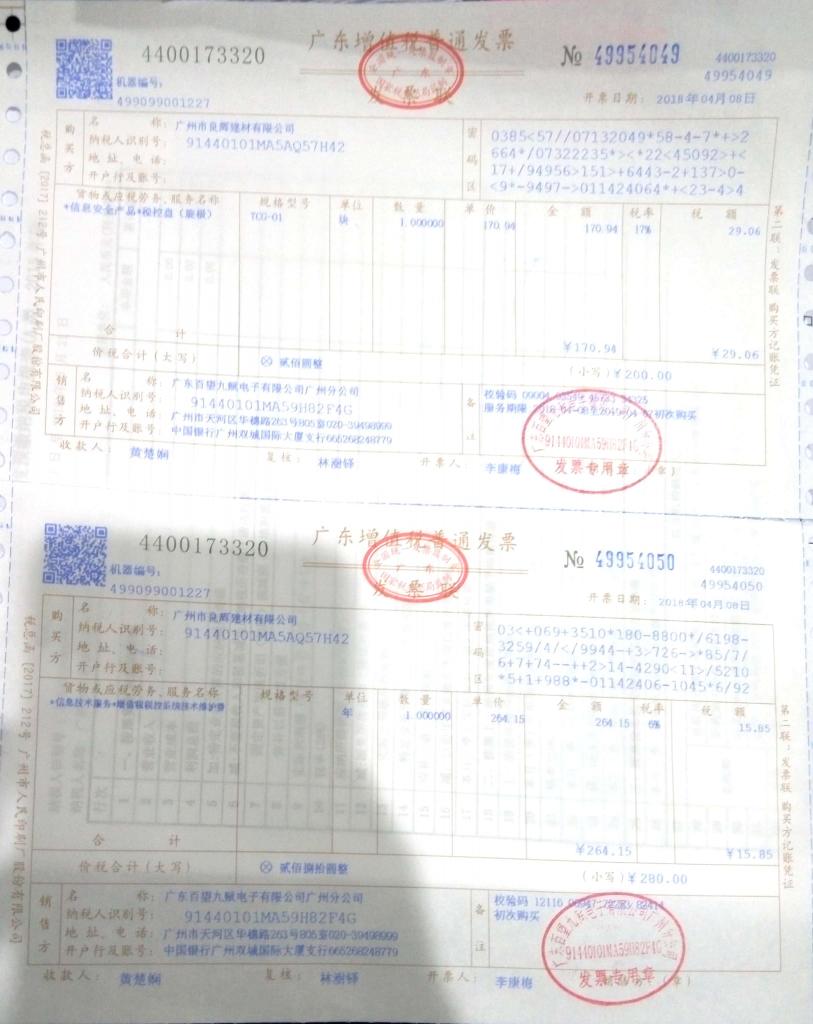 4400173320
广东增值税普通发票
发票联
№ 49954049
4400173320
49954049
机器编号:
499099001227
开票日期: 2018年04月08日
购买方
名 称: 广州市良辉建材有限公司
纳税人识别号: 91440101MA5AQ57H42
地 址、电 话:
开户行及账号:
密码区
0385<57//07132049*58-4-7*+>2
664*/07322235*><*22<45092>+<
17+/94956>151>+6443-2+137>0-
<9*-9497->011424064*+<23-4>4
货物或应税劳务、服务名称 规格型号 单位 数 量 单 价 金 额 税率 税 额
*信息安全产品*税控盘（旋极） TCG-01 块 1.000000 170.94 170.94 17% 29.06
合 计 ￥170.94 ￥29.06
价税合计（大写） ⊗ 贰佰圆整 （小写）￥200.00
销售方
名 称: 广东百望九赋电子有限公司广州分公司
纳税人识别号: 91440101MA59H82F4G
地 址、电 话: 广州市天河区华穗路263号805室020-39498999
开户行及账号: 中国银行广州双城国际大厦支行665268248779
备注
校验码 09004
服务期限 初次购买
91440101MA59H82F4G
发票专用章
收款人: 黄楚娴 复核: 林澍铎 开票人: 李康梅
税总函〔2017〕212号 广州市人民印刷厂股份有限公司
第二联：发票联 购买方记账凭证
4400173320
广东增值税普通发票
发票联
№ 49954050
4400173320
49954050
机器编号:
499099001227
开票日期: 2018年04月08日
购买方
名 称: 广州市良辉建材有限公司
纳税人识别号: 91440101MA5AQ57H42
地 址、电 话:
开户行及账号:
密码区
03<+069+3510*180-8800*/6198-
3259/4/</9944-+3>726->*85/7/
6+7+74--++2>14-4290<11>/5210
*5+1+988*-01142406-1045*6/92
货物或应税劳务、服务名称 规格型号 单位 数 量 单 价 金 额 税率 税 额
*信息技术服务*增值税税控系统技术维护费 年 1.000000 264.15 264.15 6% 15.85
合 计 ￥264.15 ￥15.85
价税合计（大写） ⊗ 贰佰捌拾圆整 （小写）￥280.00
销售方
名 称: 广东百望九赋电子有限公司广州分公司
纳税人识别号: 91440101MA59H82F4G
地 址、电 话: 广州市天河区华穗路263号805室020-39498999
开户行及账号: 中国银行广州双城国际大厦支行665268248779
备注
校验码 12116
初次购买
91440101MA59H82F4G
发票专用章
收款人: 黄楚娴 复核: 林澍铎 开票人: 李康梅
税总函〔2017〕212号 广州市人民印刷厂股份有限公司
第二联：发票联 购买方记账凭证